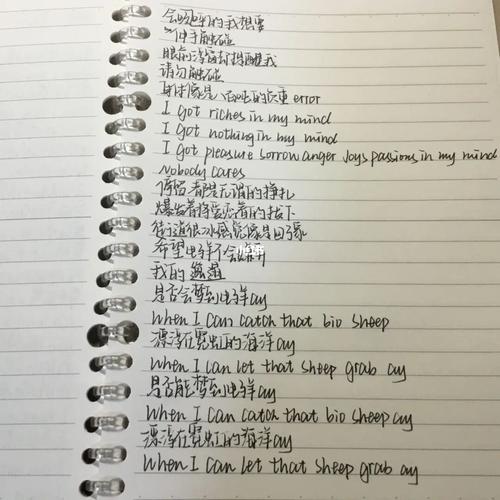 的我想要
一伸手触碰
眼前浮窗却提醒我
请勿触碰
身体像是 的 重 error
I got riches in my mind
I got nothing in my mind
I got pleasure sorrow anger Joys passions in my mind
Nobody cares
停留都是无谓的挣扎
爆发着将 着的
街道很冰感觉像是回了家
希望电子羊不会
我的
是否会梦到电子羊ay
When I can catch that bio sheep
漂浮在霓虹的海洋ay
When I can let that sheep grab ay
是否能梦到电子羊ay
When I can catch that bio sheep ay
漂浮在霓虹的海洋ay
When I can let that sheep grab ay